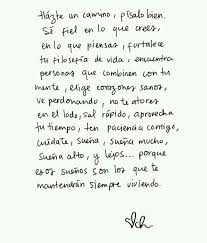 Hazte un camino, písalo bien.
Sé fiel en lo que crees,
en lo que piensas, fortalece
tu filosofía de vida, encuentra
personas que combinen con tu
mente, elige corazones sanos,
ve perdonando, no te atores
en el lodo, sal rápido, aprovecha
tu tiempo, ten paciencia contigo,
cuídate, sueña, sueña mucho,
sueña alto, y lejos... porque
esos sueños son los que te
mantendrán siempre viviendo.